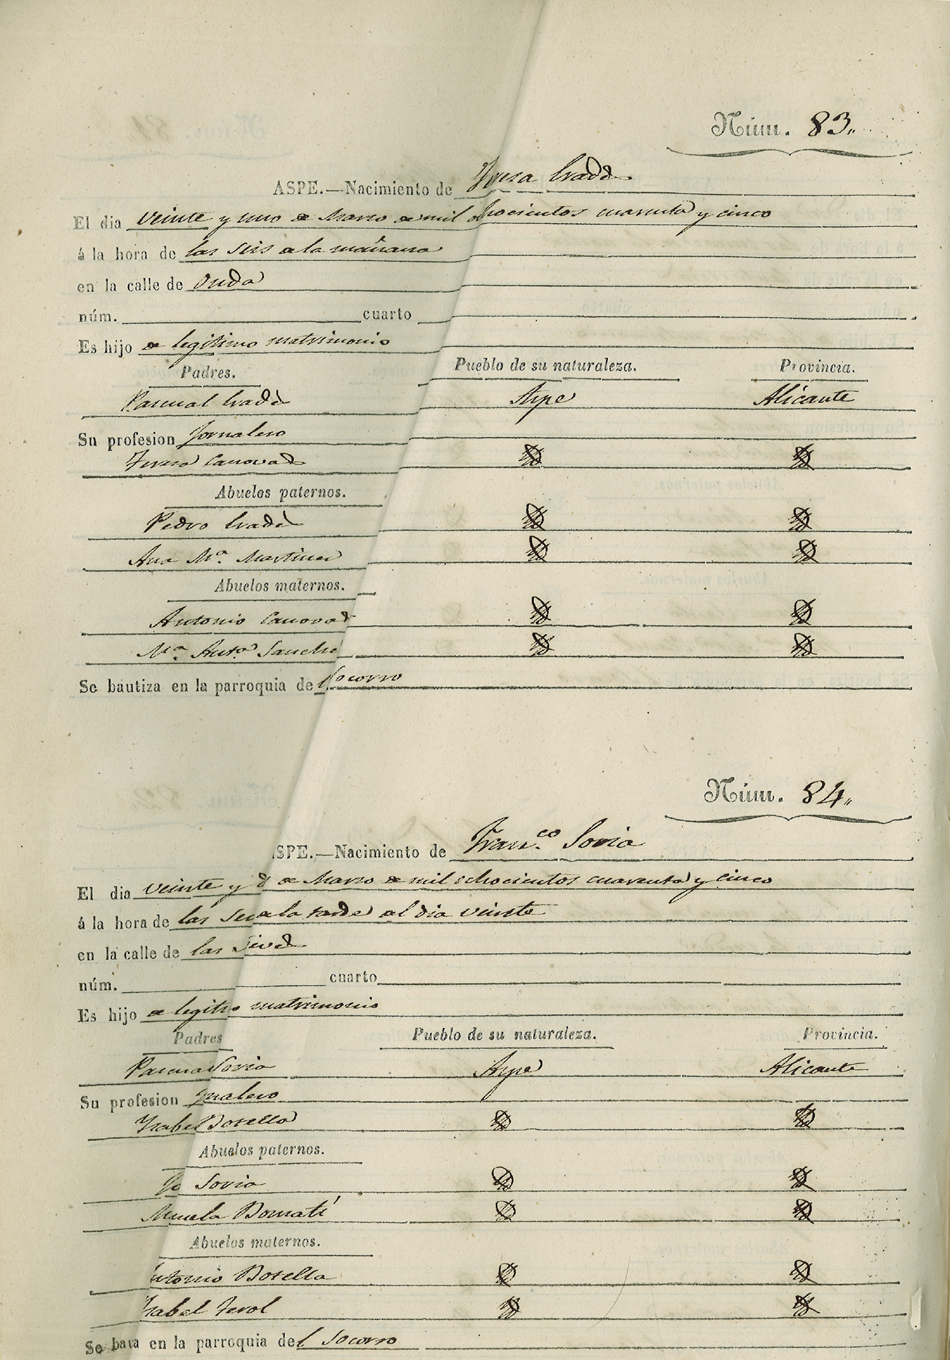 Núm. 83.
ASPE.—Nacimiento de Teresa Cradd.
El dia veinte y uno de Marzo de mil ochocientos cuarenta y cinco
á la hora de las seis de la mañana
en la calle de Onda
núm. cuarto
Es hijo de legitimo matrimonio
Padres. Pueblo de su naturaleza. Provincia.
Pascual Aspe Alicante
Su profesion Jornalero
Teresa Canovas Id Id
Abuelos paternos.
Pedro Id Id
Ana Mª. Martinez Id Id
Abuelos maternos.
Antonio Canovas Id Id
Mª Antª. Sanche Id Id
Se bautiza en la parroquia del Socorro
Núm. 84.
SPE.—Nacimiento de Franco. Soria
El dia veinte y d de Marzo de mil ochocientos cuarenta y cinco
á la hora de las de la tarde del dia veinte
en la calle de las
núm. cuarto
Es hijo de legitº matrimonio
Padres Pueblo de su naturaleza. Provincia.
Pascua Soria Aspe Alicante
Su profesion nalero
Isabel Botella Id Id
Abuelos paternos.
Soria Id Id
Id Id
Abuelos maternos.
ntonio Botella Id Id
sabel Terol Id Id
Se bata en la parroquia del Socorro